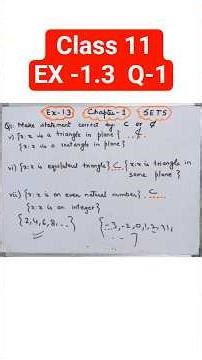 Class 11
EX -1.3 Q-1
Ex-1.3 Chapter-1 SETS
Q1. Make statement correct by ⊂ or ⊄
v) {x:x is a triangle in plane} ...⊄...
{x:x is a rectangle in plane}
vi) {x:x is equilateral triangle} ..⊂.. {x:x is triangle in
same plane}
vii) {x:x is an even natural number} ..⊂...
{x:x is an integer}
{2,4,6,8,...} {...-3,-2,0,1,2,3,